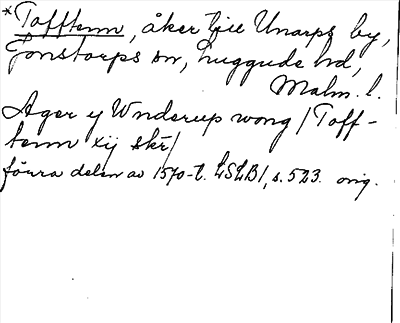 *Tofftenn, åker till Unarps by,
Jonstorps sn, Luggude hd,
Malm. l.
Ager y Wnderup wong / Toff-
tenn xij skr/
förra delen av 1570-t. LSLB1, s. 523. orig.